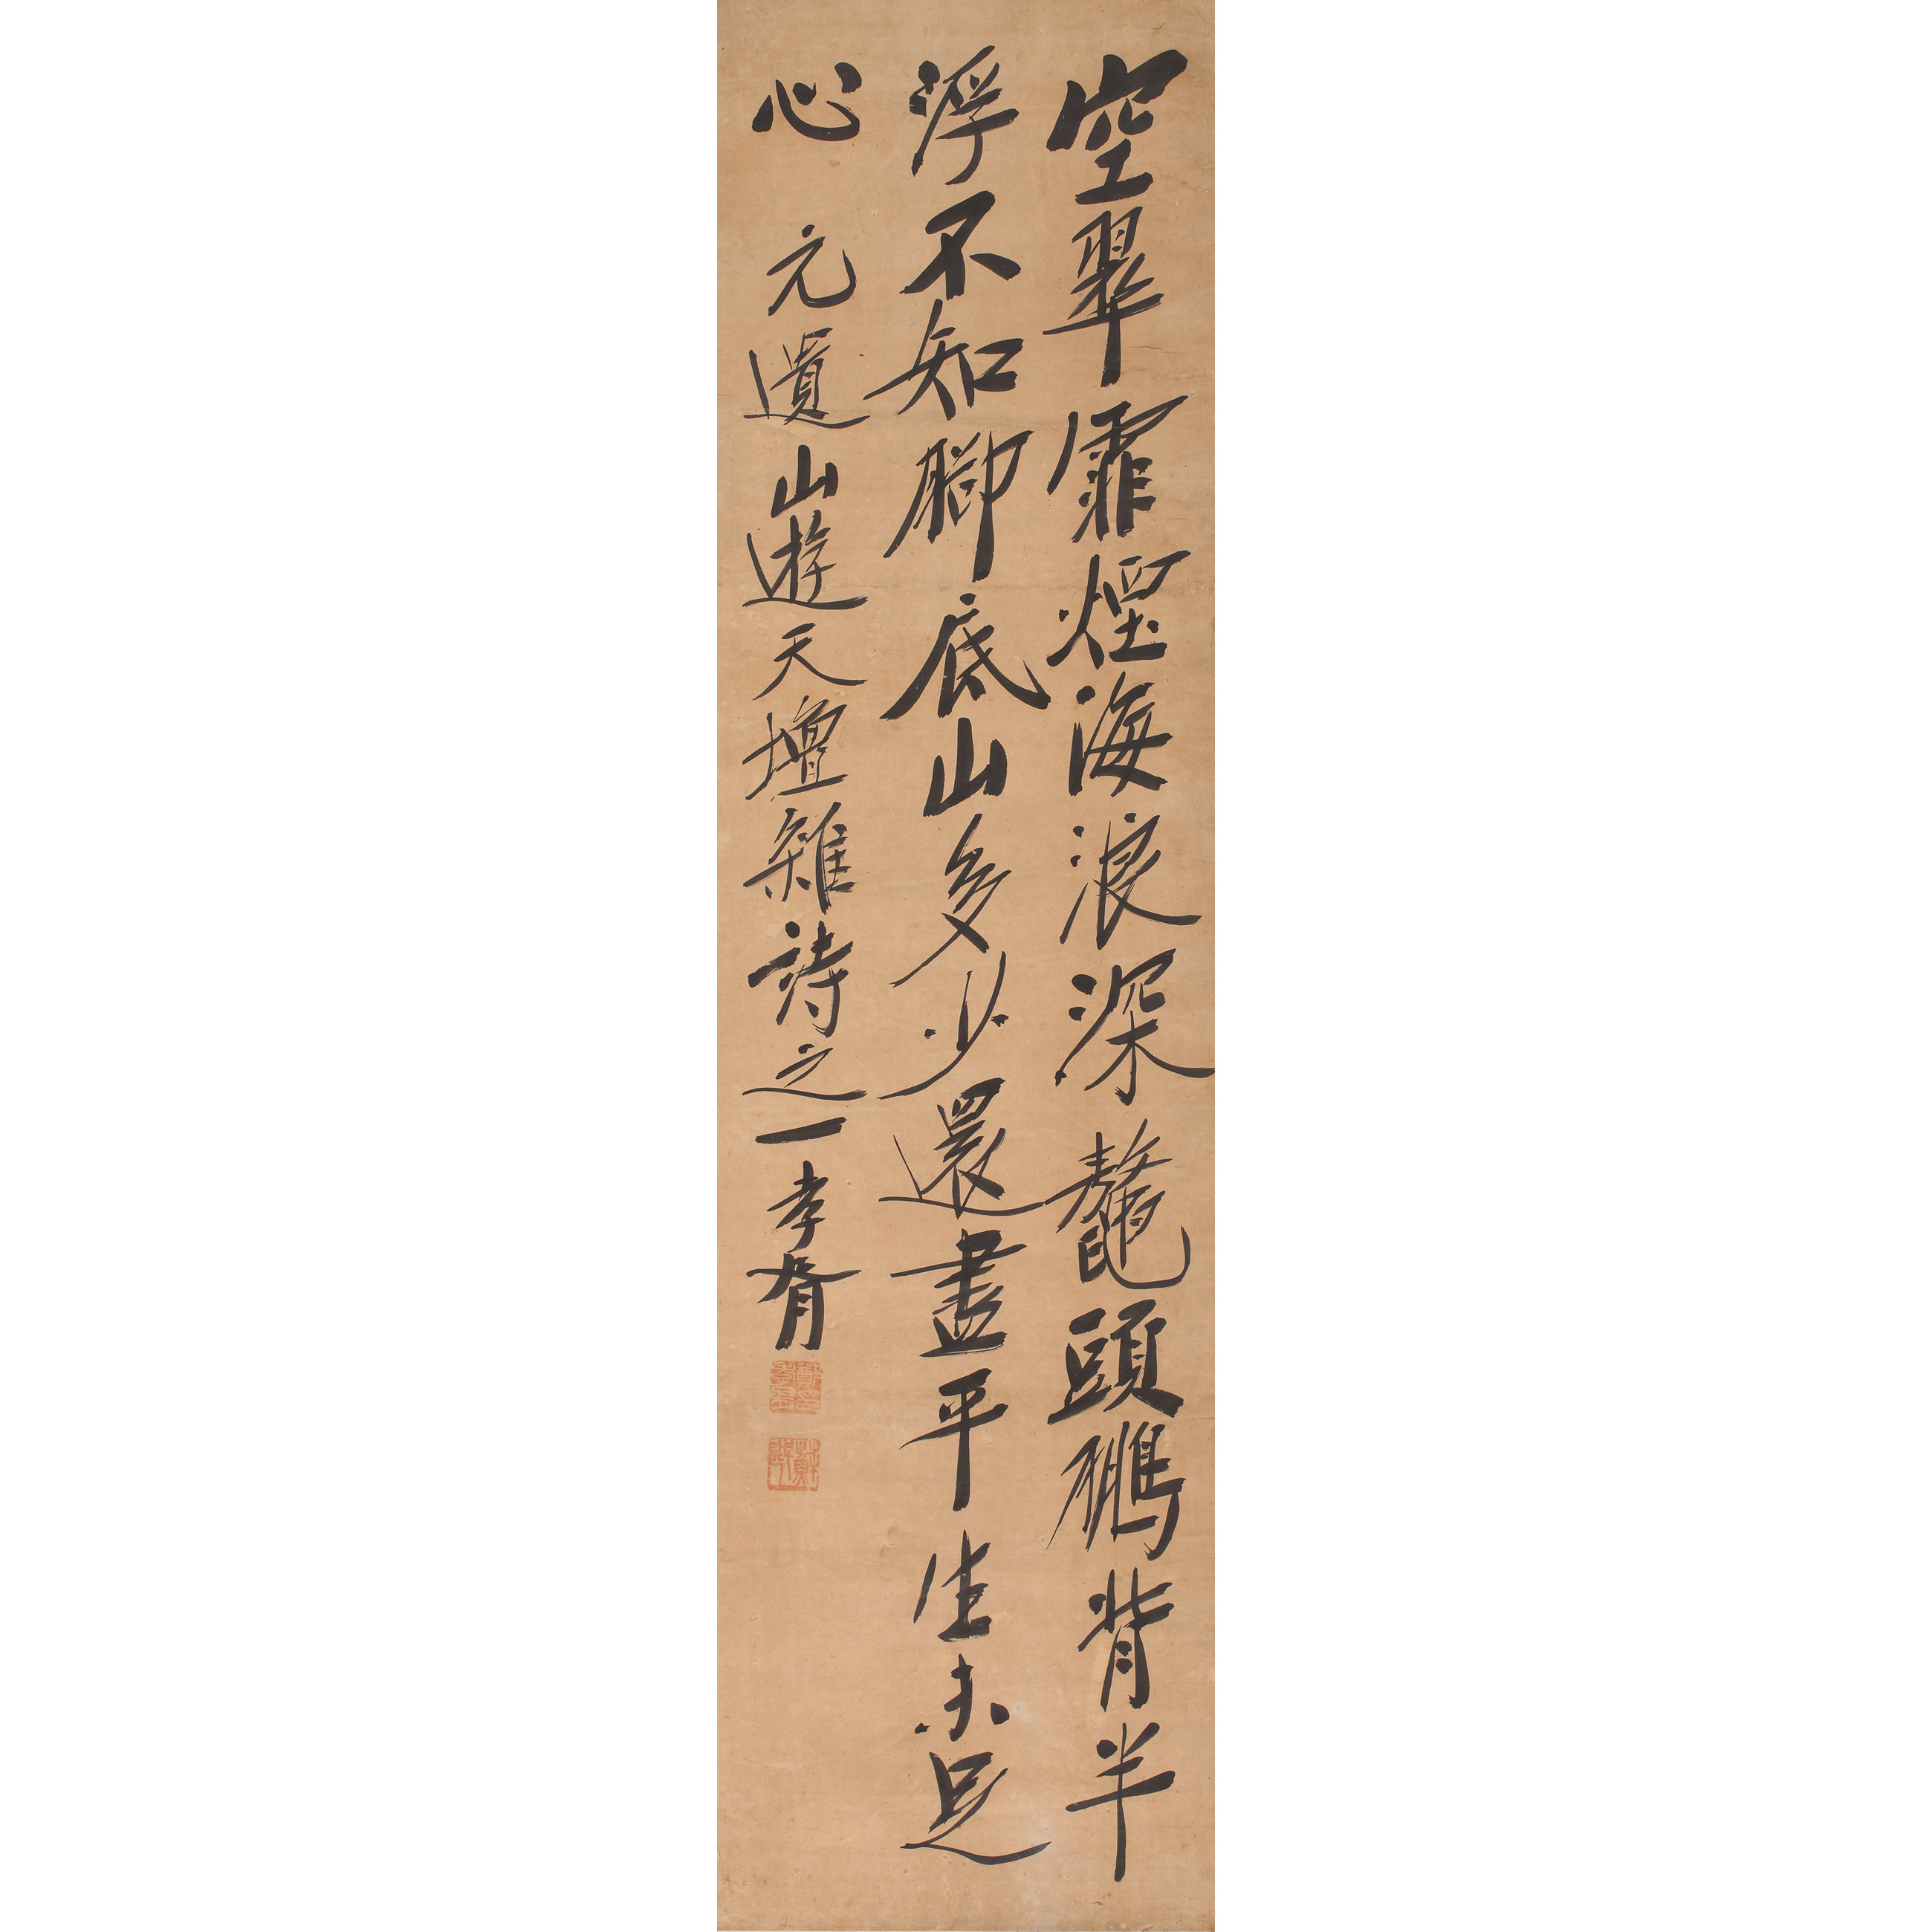 空翠霏煙海浪深鼇頭鵬背半
浮不知腳底山多少還盡平生未足
心 元遺山遊天壇雜詩之一孝胥